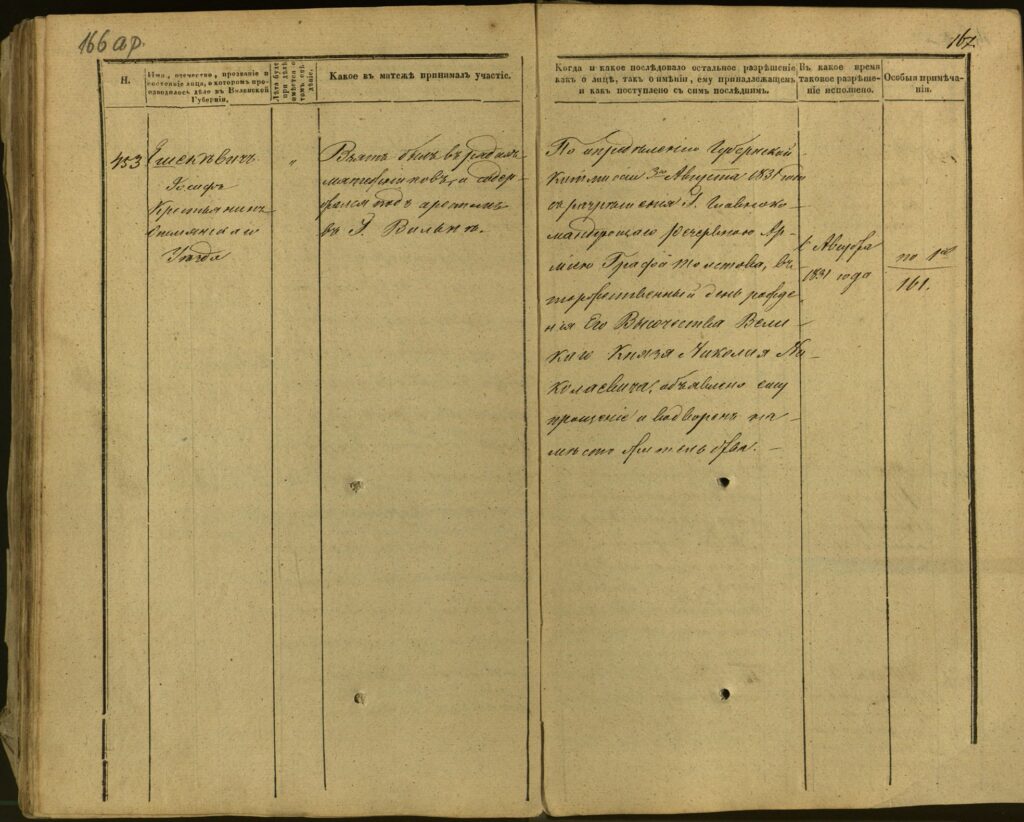 166 ар.
167.
Н.
Имя, отечество, прозваніе и
состояніе лица, о которомъ про-
изводилось дѣло въ Виленской
Губерніи.
Какое въ мятежѣ принималъ участіе.
Когда и какое послѣдовало остальное разрѣшеніе
какъ о лицѣ, такъ о имѣніи, ему принадлежащемъ
и какъ поступлено съ симъ послѣднимъ.
Въ какое время
таковое разрѣше-
ніе исполнено.
Особыя примѣча-
нія.
453
Іосифъ
Крестьянинъ
Уѣзда
"
Взятъ былъ въ
мятежниковъ, и содер-
жался подъ арестомъ
въ Г. Вильнѣ.
По опредѣленію Губернской
Коммисіи Августа 1831 года
съ разрѣшенія Г. Главноко-
мандующаго резервною Ар-
міею Графа Толстова, въ
торжественный день рожде-
нія Его Высочества Вели-
каго Князя Николая Ни-
колаевича, объявлено ему
прощеніе и водворенъ на
мѣсто жительства. —
Августа
1831 года
по
161.